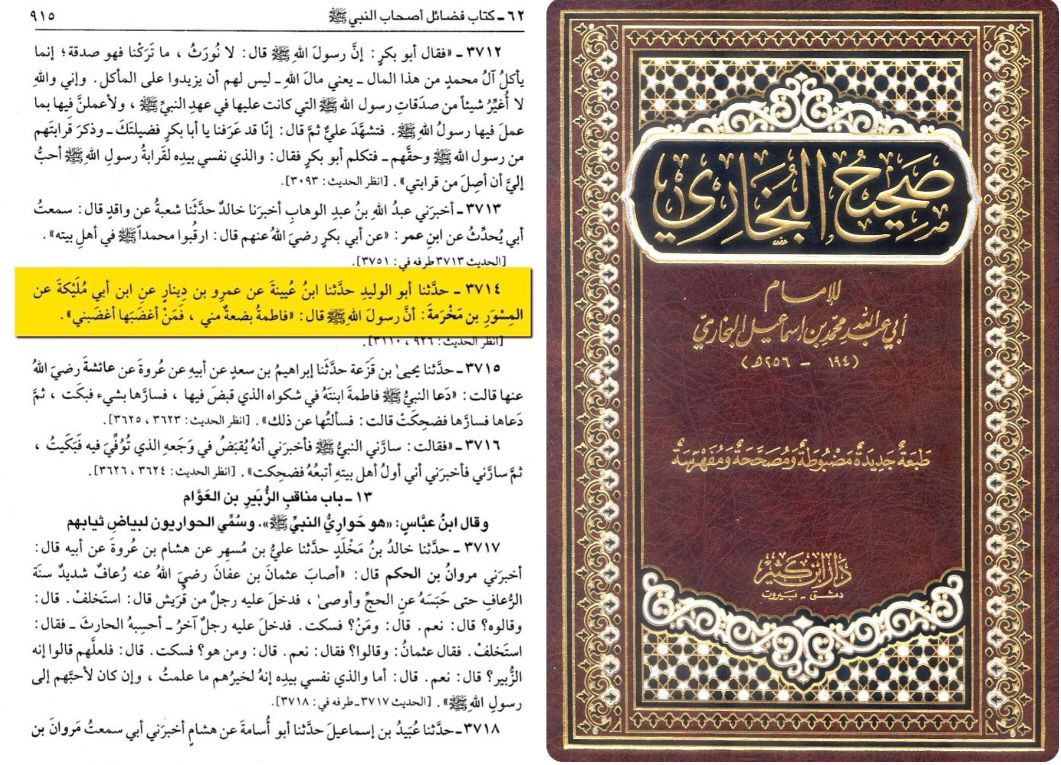 ٦٢ ـ كتاب فضائل أصحاب النبي ﷺ
٩١٥
٣٧١٢ ـ «فقال أبو بكرٍ : إنَّ رسولَ اللهِ ﷺ قال: لا نُورَثُ ، ما تَرَكْنا فهو صدقة؛ إنما
يأكلُ آلُ محمدٍ من هذا المال ـ يعني مالَ اللهِ ـ ليس لهم أن يزيدوا على المأكل . وإني واللهِ
لا أُغيِّرُ شيئاً من صدَقاتِ رسولِ الله ﷺ التي كانت عليها في عهدِ النبيِّ ﷺ ، ولأعملنَّ فيها بما
عملَ فيها رسولُ اللهِ ﷺ . فتشهَّدَ عليٌّ ثمَّ قال: إنّا قد عَرَفنا يا أبا بكرٍ فضيلتَكَ ـ وذكرَ قَرابتَهم
من رسول الله ﷺ وحقَّهم ـ فتكلم أبو بكر فقال: والذي نفسي بيدِه لقَرابةُ رسولِ اللهِ ﷺ أحبُّ
إليَّ أن أصِلَ من قرابتي» . [انظر الحديث : ٣٠٩٣].
٣٧١٣ ـ أخبرَني عبدُ اللهِ بنُ عبدِ الوهابِ أخبرَنا خالدٌ حدَّثَنا شعبةُ عن واقدٍ قال: سمعتُ
أبي يُحدِّثُ عن ابنِ عمر : «عن أبي بكرٍ رضيَ اللهُ عنهم قال: ارقُبوا محمداً ﷺ في أهلِ بيته» .
[الحديث ٣٧١٣ طرفه في: ٣٧٥١].
٣٧١٤ ـ حدَّثنا أبو الوليدِ حدَّثَنا ابنُ عُيينةَ عن عمرِو بن دِينارٍ عنِ ابن أبي مُلَيْكةَ عن
المِسْوَرِ بن مَخْرَمةَ: أنَّ رسولَ اللهِ ﷺ قال: «فاطمةُ بضعةٌ مني ، فَمَنْ أغضَبَها أغضَبني» .
[انظر الحديث: ٩٢٦ ، ٣١١٠].
٣٧١٥ ـ حدَّثنا يحيىٰ بن قَزَعة حدَّثنا إبراهيمُ بن سعدٍ عن أبيهِ عن عُروةَ عن عائشةَ رضيَ اللهُ
عنها قالت: «دَعا النبيُّ ﷺ فاطمةَ ابنتَهُ في شكواه الذي قبضَ فيها ، فسارَّها بشيء فبكَت ، ثمَّ
دَعاها فسارَّها فضحِكَتْ قالت: فسألتُها عن ذلك» . [انظر الحديث: ٣٦٢٣ ، ٣٦٢٥].
٣٧١٦ ـ «فقالت: سارَّني النبيُّ ﷺ فأخبرَني أنهُ يُقبَضُ في وَجَعهِ الذي تُوُفِّيَ فيه فَبَكَيتُ ،
ثمَّ سارَّني فأخبرَني أني أولُ أهل بيتِهِ أتبعُهُ فضحِكت» . [انظر الحديث: ٣٦٢٤ ، ٣٦٢٦].
١٣ ـ باب مناقبِ الزُّبَيرِ بن العَوَّام
وقال ابنُ عبَّاس: «هو حَوارِيُّ النبيِّ ﷺ» . وسُمِّي الحواريون لبياضِ ثيابهم
٣٧١٧ ـ حدَّثَنا خالدُ بنُ مَخْلَدٍ حدَّثَنا عليُّ بن مُسهر عن هشام بن عُروةَ عن أبيه قال:
أخبرَني مروانُ بن الحكم قال: «أصابَ عثمانَ بن عفان رضيَ اللهُ عنه رُعافٌ شديدٌ سنةَ
الرُّعافِ حتى حَبَسَهُ عنِ الحجِّ وأوصىٰ ، فدخلَ عليه رجلٌ من قُرَيش قال: استَخلفْ. قال:
وقالوه؟ قال: نعم. قال: ومَنْ؟ فسكت. فدخلَ عليه رجلٌ آخرُ ـ أحسِبه الحارثَ ـ فقال:
استَخلفْ. فقال عثمانُ: وقالوا؟ فقال: نعم. قال: ومن هو؟ فسكت. قال: فلعلَّهم قالوا إنه
الزُّبير؟ قال: نعم. قال: أما والذي نفسي بيدِه إنهُ لخيرُهم ما علمتُ ، وإن كان لأحبَّهم إلى
رسولِ اللهِ ﷺ» . [الحديث ٣٧١٧ـ طرفه في: ٣٧١٨].
٣٧١٨ ـ حدَّثَنا عُبَيدُ بن إسماعيلَ حدَّثَنا أبو أُسامةَ عن هشامٍ أخبرَني أبي سمعتُ مَروانَ بن
صَحِيحُ البُخَارِي
للإمام
أبي عبد الله محمد بن إسماعيل البخاريّ
(١٩٤ - ٢٥٦هـ)
طَبعَةٌ جَدِيدَةٌ مَضْبُوطَةٌ وَمُصَحَّحَةٌ وَمُفَهْرَسَةٌ
دار ابن كثير
دمشق ـ بيروت